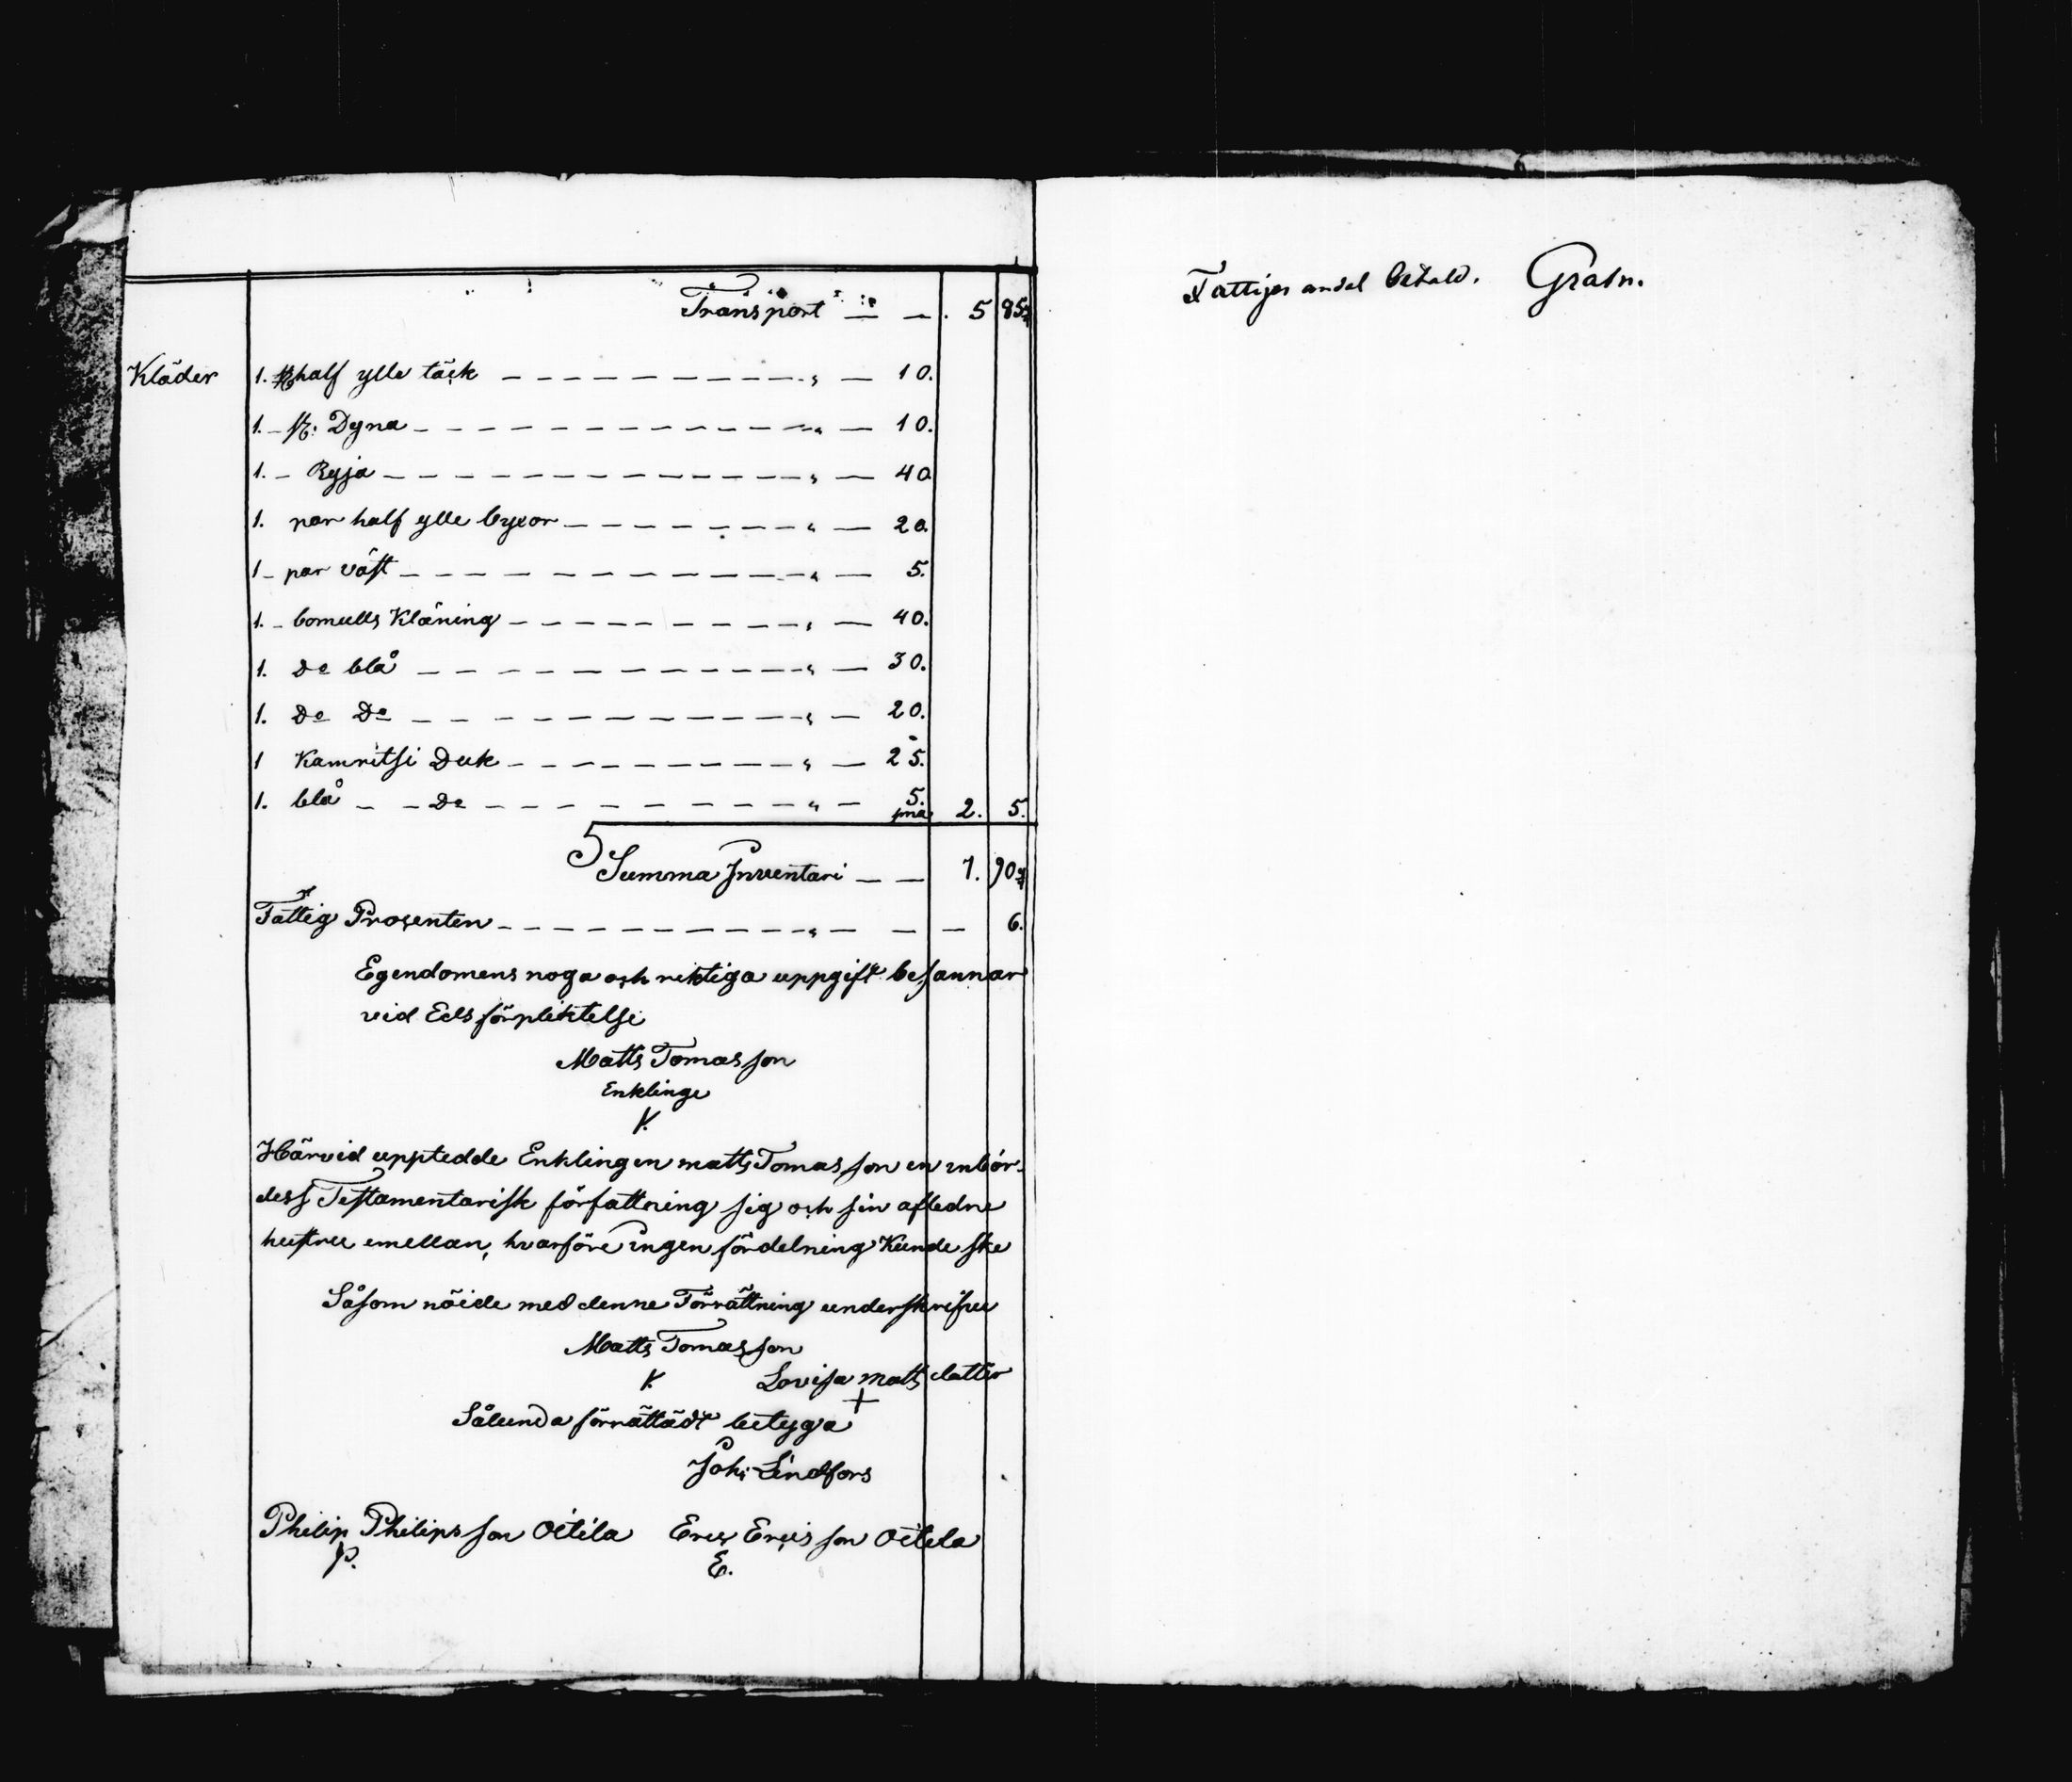 Transport — — . 5 85 4/7
Kläder 1. half ylle täck — — — „ — 10.
1. – st: Dyna — — — „ — 10.
1. – Ryja — — — „ — 40
1. par half ylle byxor — — — „ — 20.
1 – par väst — — — „ — 5.
1. – bomulls Kläning — — — „ — 40.
1. Do blå — — — „ — 30.
1. Do Do — — — „ — 20.
1 Kamritsi Duk — — — „ — 25.
1. blå — — Do — — — „ — 5. 2. 5.
Summa Inventari — — 7. 90 4/7
Fattig Prosenten — — — „ — — — 6.
Egendomens noga och riktiga uppgift besannar
vid Eds förpliktelse
Matts Tomasson
Enklinge
Härvid upptedde Enklingen matts Tomasson en inbör-
dess Testamentarisk författning sig och sin afledne
hustru emellan, hvarföre ingen fördelning Kunde ske
Såsom nöide med denne Förrättning underskrifva
Matts Tomasson
Lovisa matts dotter
+
Sålunda förrättadt betyga
Joh: Lindfors
Philip Philipsson Oitila Eric Ericsson Oitila
P. E.
Fattiges andel betald. Grasn.